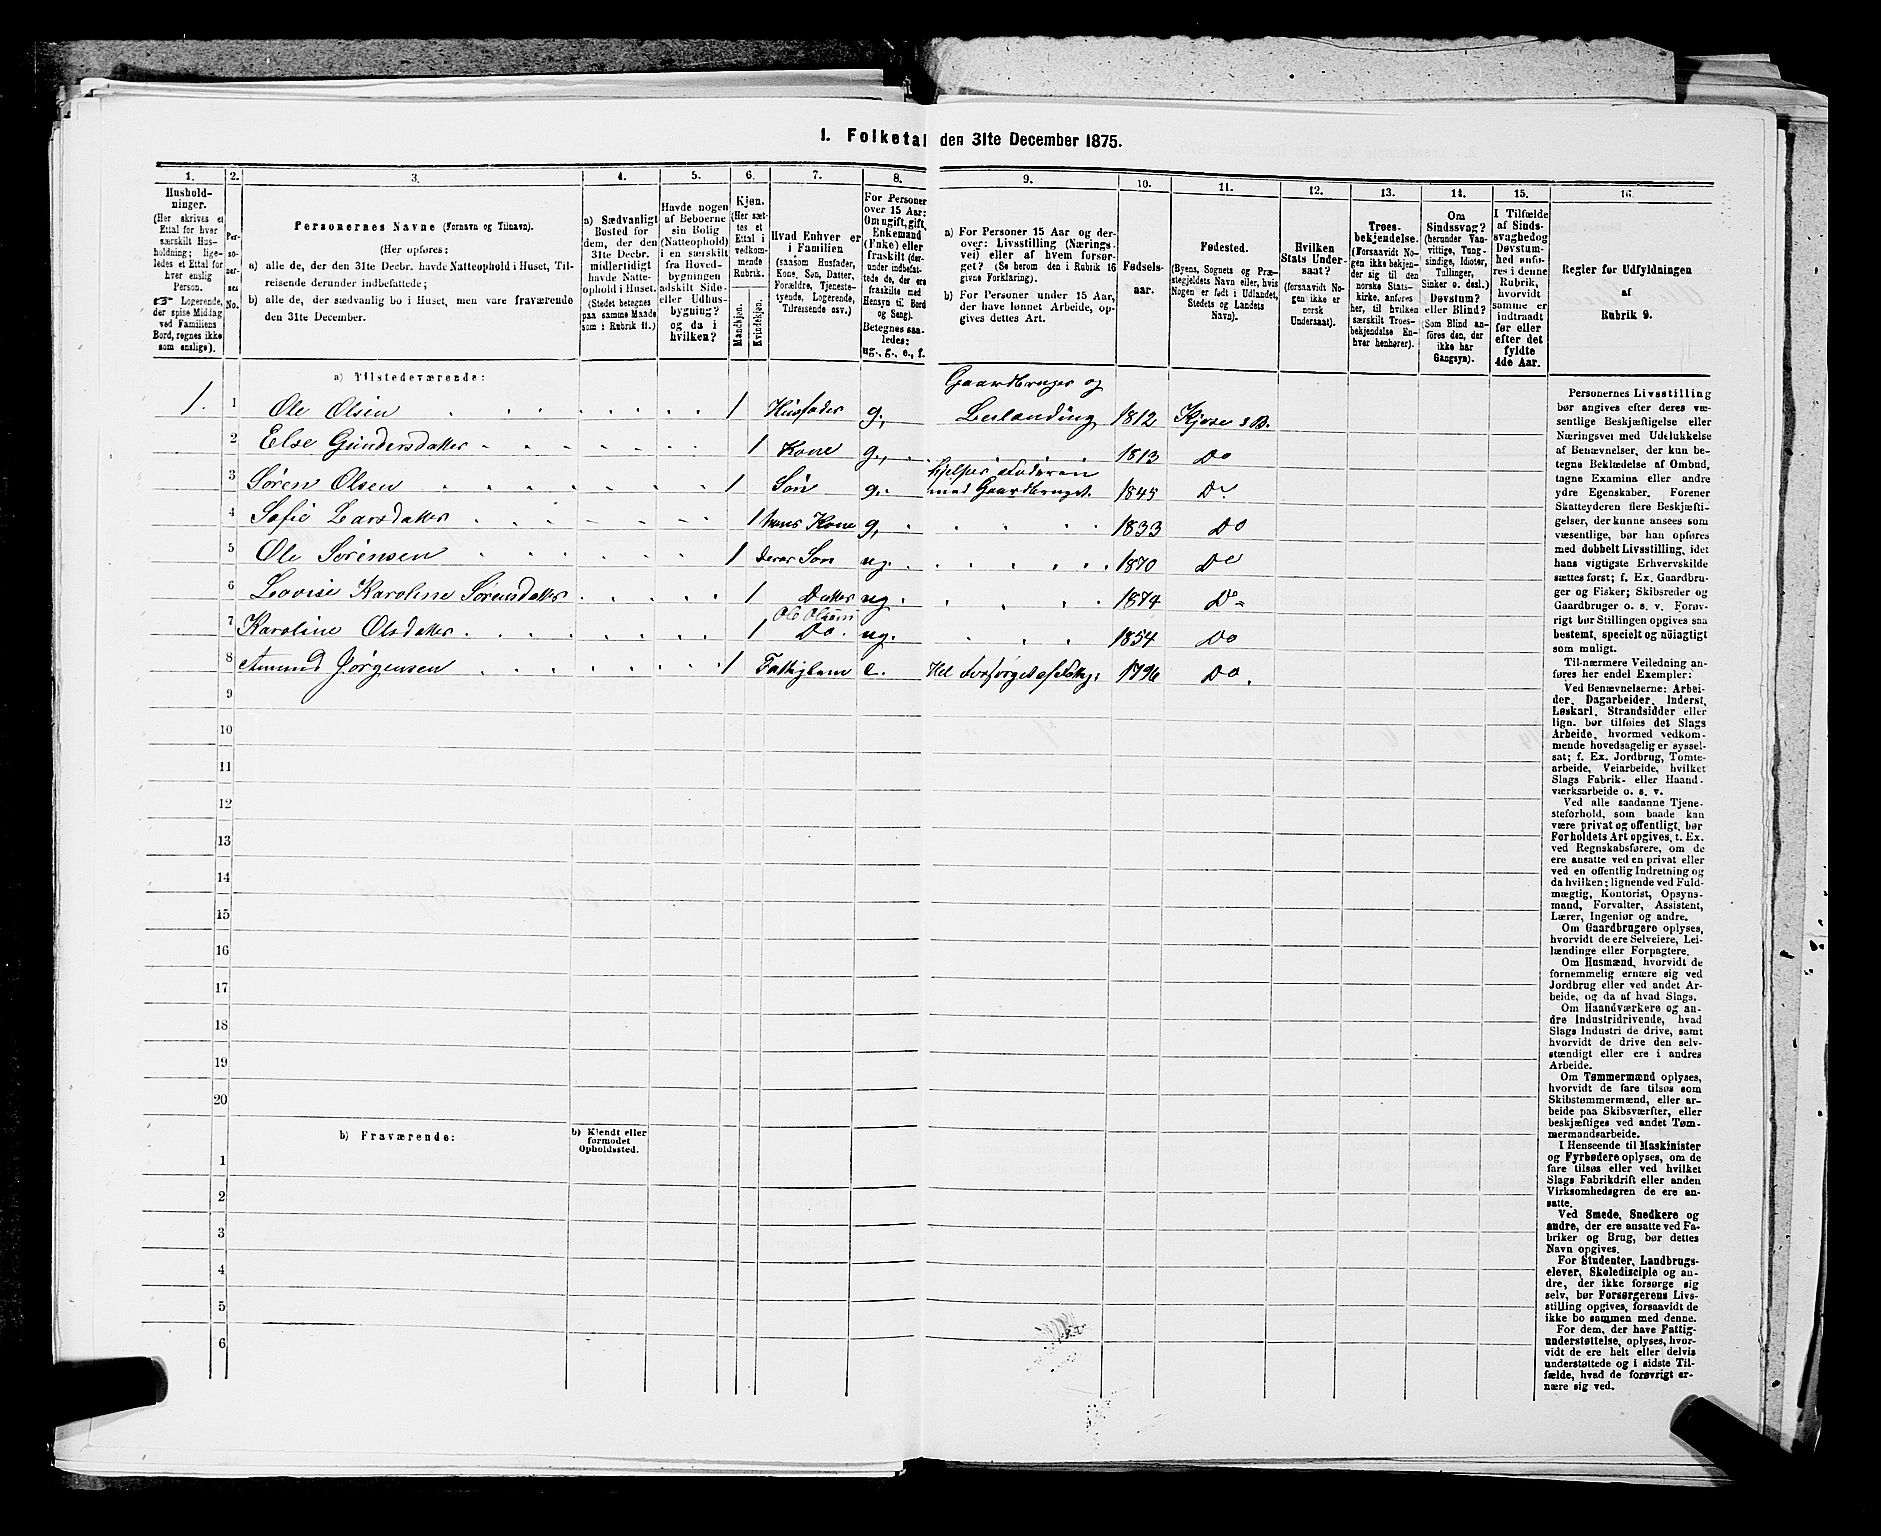 1. Folketal den 31te December 1875.
1.
2.
3.
4.
5.
6.
7.
8.
9.
10.
11.
12.
13.
14.
15.
16.
Hushold-
ninger.
(Her skrives et
Ettal for hver
særskilt Hus-
holdning; lige-
ledes et Ettal for
hver enslig
Person.
☞ Logerende,
der spise Middag
ved Familiens
Bord, regnes ikke
som enslige).
Per-
so-
ner-
nes
No.
Personernes Navne (Fornavn og Tilnavn).
(Her opføres:
a) alle de, der den 31te Decbr. havde Natteophold i Huset, Til-
reisende derunder indbefattede;
b) alle de, der sædvanlig bo i Huset, men vare fraværende
den 31te December.
a) Sædvanligt
Bosted for
dem, der den
31te Decbr.
midlertidigt
havde Natte-
ophold i Huset.
(Stedet betegnes
paa samme Maade
som i Rubrik 11.)
Havde nogen
af Beboerne
sin Bolig
(Natteophold)
i en særskilt
fra Hoved-
bygningen
adskilt Side-
eller Udhus-
bygning?
og da i
hvilken?
Kjøn.
(Her sæt-
tes et
Ettal i
vedkom-
mende
Rubrik.
Mandkjøn.
Kvindekjøn.
Hvad Enhver er
i Familien
(saasom Husfader,
Kone, Søn, Datter,
Forældre, Tjeneste-
tyende, Logerende,
Tilreisende osv.)
For Personer
over 15 Aar:
Om ugift, gift,
Enkemand
(Enke) eller
fraskilt (der-
under indbefat-
tede de, der ere
fraskilte med
Hensyn til Bord
og Seng).
Betegnes saa-
ledes:
ug., g., e., f.
a) For Personer 15 Aar og der-
over: Livsstilling (Nærings-
vei) eller af hvem forsør-
get? (Se herom den i Rubrik 16
givne Forklaring).
b) For Personer under 15 Aar,
der have lønnet Arbeide, op-
gives dettes Art.
Fødsels-
aar.
Fødested.
(Byens, Sognets og Præ-
stegjeldets Navn eller, hvis
Nogen er født i Udlandet,
Stedets og Landets
Navn).
Hvilken
Stats Under-
saat?
(forsaavidt No-
gen ikke er
norsk
Undersaat).
Troes-
bekjendelse.
(Forsaavidt No-
gen ikke bekjen-
der sig til den
norske Stats-
kirke, anføres
her, til hvilken
særskilt Troes-
bekjendelse En-
hver henhører).
Om
Sindssvag?
(herunder Van-
vittige, Tung-
sindige, Idioter,
Tullinger,
Sinker o. desl.)
Døvstum?
eller Blind?
(Som Blind an-
føres den, der
ikke har
Gangsyn).
I Tilfælde
af Sinds-
svaghed og
Døvstum-
hed anfø-
res i denne
Rubrik,
hvorvidt
samme er
indtraadt
før eller
efter det
fyldte
4de Aar.
Regler for Udfyldningen
af
Rubrik 9.
a) Tilstedeværende:
Gaardbruger og
1. 1 Ole Olsen 1 Husfader g. Leilænding 1812 Kjose s B.
2 Else Gundersdatter 1 Kone g. 1813 Do
hjelper Faderen
3 Søren Olsen 1 Søn g. med Gaardbruget. 1845 Do
4 Sofie Larsdatter 1 hans Kone g. 1833 Do
5 Ole Sørensen 1 deres Søn ug. 1870 Do
6 Lovise Karoline Sørensdatter 1 Datter ug. 1874 Do
Ole Olsens
7 Karoline Olsdatter 1 Do. ug. 1854 Do
8 Amund Jørgensen 1 Fattiglem e. Hel forsørget af Fattigv. 1796 Do.
9
10
11
12
13
14
15
16
17
18
19
20
b) Fraværende:
b) Kjendt eller
formodet
Opholdssted.
1
2
3
4
5
6
Personernes Livsstilling
bør angives efter deres væ-
sentlige Beskjæftigelse eller
Næringsvei med Udelukkelse
af Benævnelser, der kun be-
tegne Beklædelse af Ombud,
tagne Examina eller andre
ydre Egenskaber. Forener
Skatteyderen flere Beskjæfti-
gelser, der kunne ansees som
væsentlige, bør han opføres
med dobbelt Livsstilling, idet
hans vigtigste Erhvervskilde
sættes først; f. Ex. Gaardbru-
ger og Fisker; Skibsreder og
Gaardbruger o. s. v. Forøv-
rigt bør Stillingen opgives saa
bestemt, specielt og nøiagtigt
som muligt.
Til nærmere Veiledning an-
føres her endel Exempler:
Ved Benævnelserne: Arbei-
der, Dagarbeider, Inderst,
Løskarl, Strandsidder eller
lign. bør tilføies det Slags
Arbeide, hvormed vedkom-
mende hovedsagelig er syssel-
sat; f. Ex. Jordbrug, Tomte-
arbeide, Veiarbeide, hvilket
Slags Fabrik- eller Haand-
værksarbeide o. s. v.
Ved alle saadanne Tjene-
steforhold, som baade kan
være privat og offentligt, bør
Forholdets Art opgives, t. Ex.
ved Regnskabsførere, om de
ere ansatte ved en privat eller
ved en offentlig Indretning og
da hvilken; lignende ved Fuld-
mægtig, Kontorist, Opsyns-
mand, Forvalter, Assistent,
Lærer, Ingeniør og andre.
Om Gaardbrugere oplyses,
hvorvidt de ere Selveiere, Lei-
lændinge eller Forpagtere.
Om Husmænd, hvorvidt de
fornemmelig ernære sig ved
Jordbrug eller ved andet Ar-
beide, og da af hvad Slags.
Om Haandværkere og an-
dre Industridrivende, hvad
Slags Industri de drive, samt
hvorvidt de drive den selv-
stændigt eller ere i andres
Arbeide.
Om Tømmermænd oplyses,
hvorvidt de fare tilsøs som
Skibstømmermænd, eller ar-
beide paa Skibsværfter, eller
beskjæftiges ved andet Tøm-
mermandsarbeide.
I Henseende til Maskinister
og Fyrbødere oplyses, om de
fare tilsøs eller ved hvilket
Slags Fabrikdrift eller anden
Virksomhedsgren de ere an-
satte.
Ved Smede, Snedkere og
andre, der ere ansatte ved Fa-
briker og Brug, bør dettes
Navn opgives.
For Studenter, Landbrugs-
elever, Skoledisciple og an-
dre, der ikke forsørge sig
selv, bør Forsørgerens Livs-
stilling opgives, forsaavidt de
ikke bo sammen med denne.
For dem, der have Fattig-
understøttelse, oplyses, hvor-
vidt de ere helt eller delvis
understøttede og i sidste Til-
fælde, hvad de forøvrigt er-
nære sig ved.